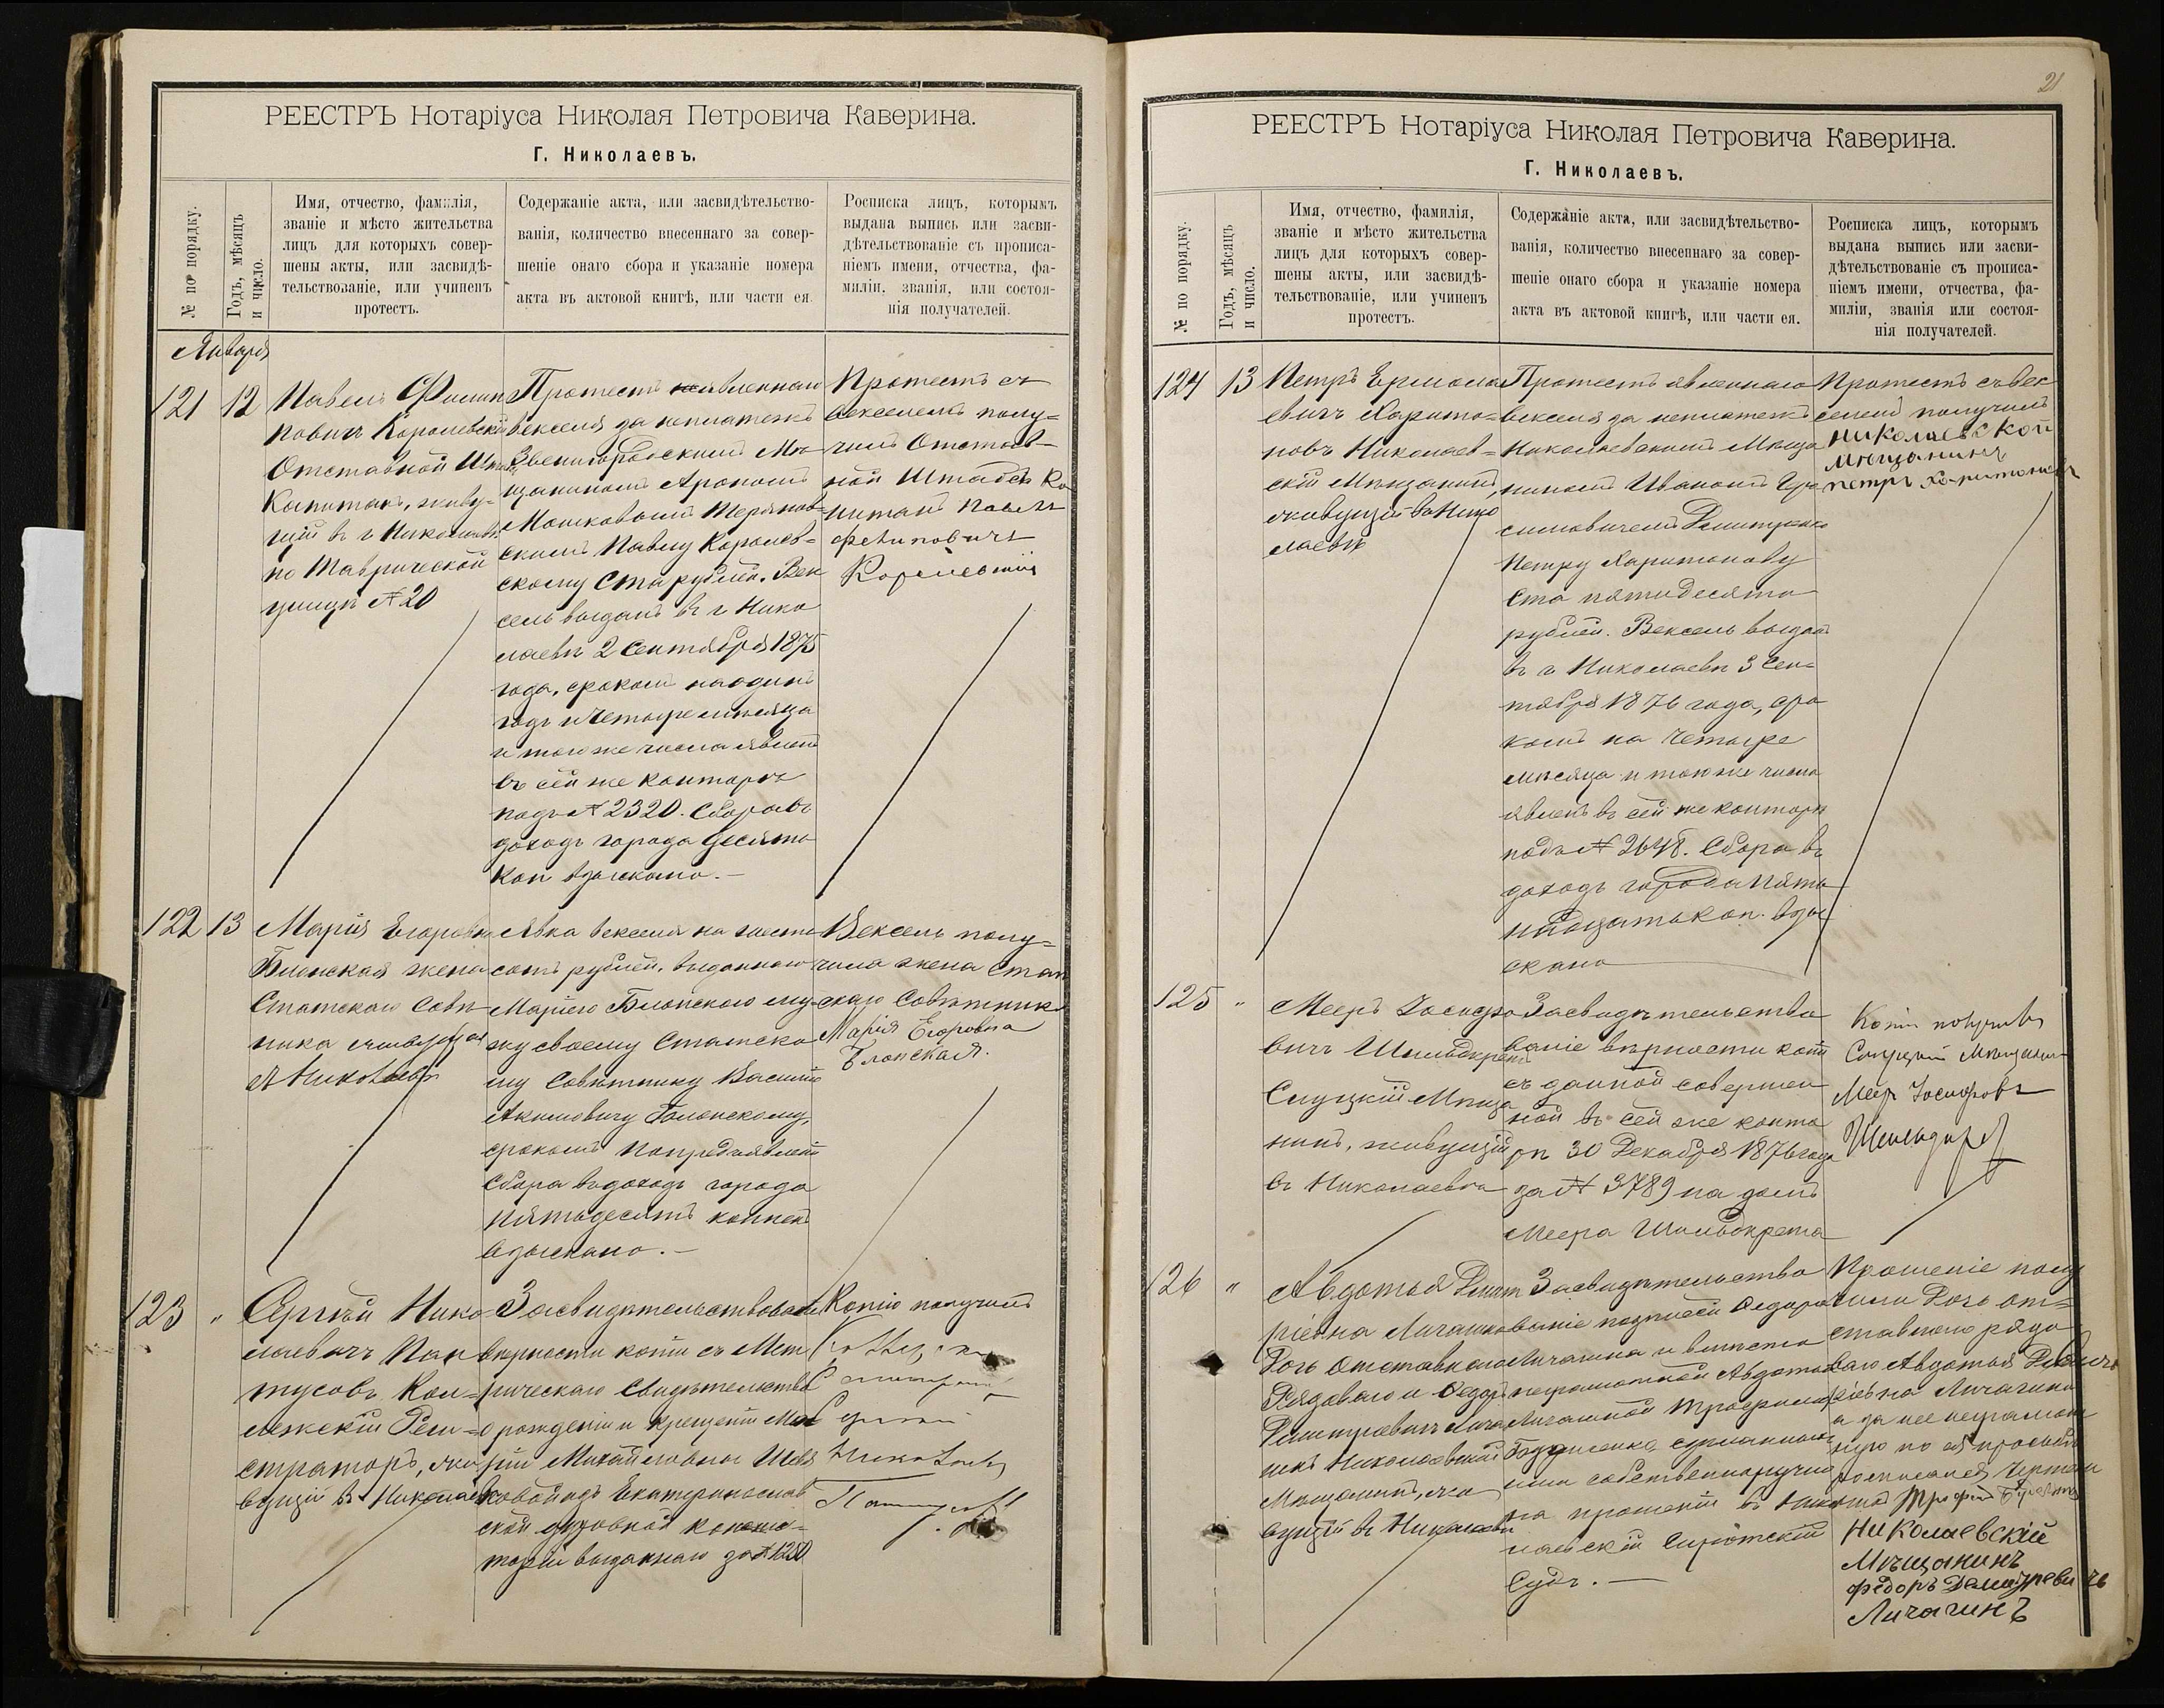 РЕЕСТРЪ Нотаріуса Николая Петровича Каверина.
Г. Николаевъ.
№ по порядку.
Годъ, мѣсяцъ
и число.
Имя, отчество, фамилія,
званіе и мѣсто жительства
лицъ для которыхъ совер-
шены акты, или засвидѣ-
тельствованіе, или учиненъ
протестъ.
Содержаніе акта, или засвидѣтельство-
ванія, количество внесеннаго за совер-
шеніе онаго сбора и указаніе номера
акта въ актовой книгѣ, или части ея.
Росписка лицъ, которымъ
выдана выпись или засви-
дѣтельствованіе съ прописа-
ніемъ имени, отчества, фа-
миліи, званія, или состоя-
нія получателей.
Января
121
12
Павелъ Филип
повичъ Королевскій
Отставной Штабсъ
Капитанъ, живу-
щій въ г Николаевѣ
по Таврической
улицѣ № 20
Протестъ явленнаго
векселя за неплатежъ
Звенигородскимъ Мѣ
щаниномъ Арономъ
Мошковымъ
скимъ Павлу Королев-
скому Ста рублей. Век
сель выданъ въ г Нико
лаевѣ 2 Сентября 1875
года, срокомъ на одинъ
годъ и четыре мѣсяца
и того же числа явленъ
въ сей же Конторѣ
подъ № 2320. Сбора въ
доходъ города десять
коп взыскано.—
Протестъ съ
векселемъ полу-
чилъ Отстав-
ной Штабсъ Ка
питанъ Павелъ
Филиповичъ
Королевскій
122
13
Марія Егоровна
Блонская жена
Статскаго Совѣт
ника живущая
в Николаевѣ
Явка векселя на шесть
сотъ рублей, выданнаго
Маріею Блонскою му-
жу своему Статско
му Совѣтнику Василію
Акимовичу Блонскому,
срокомъ по предъявленію
Сбора въ доходъ города
пятьдесятъ копѣекъ
взыскано.—
Вексель полу-
чила жена Стат
скаго Совѣтника
Марія Егоровна
Блонская.
123
"
Сергѣй Нико
лаевичъ Пан
тусовъ Кол-
лежскій Реги-
страторъ, жи
вущій въ Николаевѣ
Засвидѣтельствованіе
вѣрности копіи съ Мет
рическаго Свидѣтельства
о рожденіи и крещеніи Ма
ріи Михайловны Шев
ковой изъ Екатеринослав
ской духовной Консис-
торіи выданнаго за № 1250
Копію получилъ
Сергѣй
Николаевъ
Пантусовъ
21
РЕЕСТРЪ Нотаріуса Николая Петровича Каверина.
Г. Николаевъ.
№ по порядку.
Годъ, мѣсяцъ
и число.
Имя, отчество, фамилія,
званіе и мѣсто жительства
лицъ для которыхъ совер-
шены акты, или засвидѣ-
тельствованіе, или учиненъ
протестъ.
Содержаніе акта, или засвидѣтельство-
ванія, количество внесеннаго за совер-
шеніе онаго сбора и указаніе номера
акта въ актовой книгѣ, или части ея.
Росписка лицъ, которымъ
выдана выпись или засви-
дѣтельствованіе съ прописа-
ніемъ имени, отчества, фа-
миліи, званія или состоя-
нія получателей.
124
13
Петръ Ермола
евичъ Харито-
новъ Николаев-
скій Мѣщанинъ,
живущій въ Нико
лаевѣ
Протестъ явленнаго
векселя за неплатежъ
Николаевскимъ Мѣща
ниномъ Иваномъ Гра
симовичемъ
Петру Харитонову
Ста пятидесяти
рублей. Вексель выданъ
въ г Николаевѣ 3 Сен-
тября 1876 года, сро
комъ на четыре
мѣсяца и того же числа
явленъ въ сей же конторѣ
подъ № 2648. Сбора въ
доходъ города пять
надцать коп. взы
скано
Протестъ съ век
селемъ получилъ
Николаевской
Мющанинъ
петръ Харитоновъ
125
"
Мееръ Іосифо
вичъ Шильдкретъ
Слуцкій Мѣща
нинъ, живущій
въ Николаевѣ
Засвидѣтельство
ваніе вѣрности копіи
съ данной совершен
ной въ сей же конто
рѣ 30 Декабря 1876 года
за № 3789 на домъ
Меера Шильдкрета
Копію получилъ
Слуцкій Мѣщанинъ
Меер Іосифовъ
Шильдкретъ
126
"
Авдотья Димит
ріевна Личагина
Дочь Отставнаго
Рядоваго и Федоръ
Димитріевичъ Лича
гинъ Николаевскій
Мѣщанинъ, жи
вущій въ Николаевѣ
Засвидѣтельство
ваніе подписей Федора
Личагина и вмѣсто
неграмотной Авдотьи
Личагиной Трофима
сдѣланныхъ
ими собственноручно
на прошеніи въ Нико
лаевскій Сиротскій
Судъ.—
Прошеніе полу
чили Дочь от-
ставного рядо
ваго Авдотья Димит
ріевна Личагина
а за нее неграмот
ную по ея просьбѣ
росписался
Трофимъ
Николаевскій
Мѣщанинъ
Федоръ Демитревичъ
Личагинъ